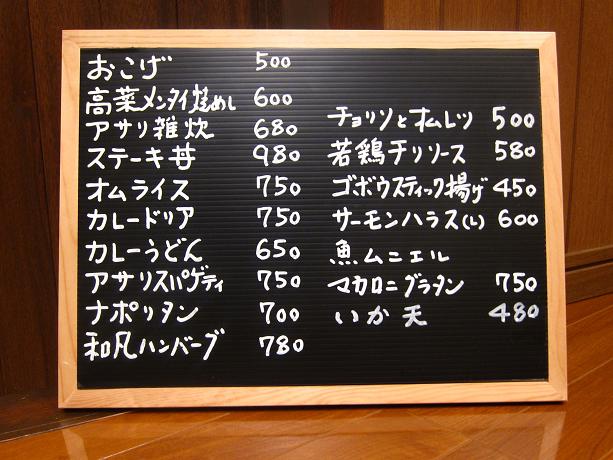 おこげ 500
高菜メンタイ焼めし 600
アサリ雑炊 680
ステーキ丼 980
オムライス 750
カレードリア 750
カレーうどん 650
アサリスパゲティ 750
ナポリタン 700
和風ハンバーグ 780
チョリソとオムレツ 500
若鶏チリソース 580
ゴボウスティック揚げ 450
サーモンハラス(L) 600
魚ムニエル
マカロニグラタン 750
いか天 480